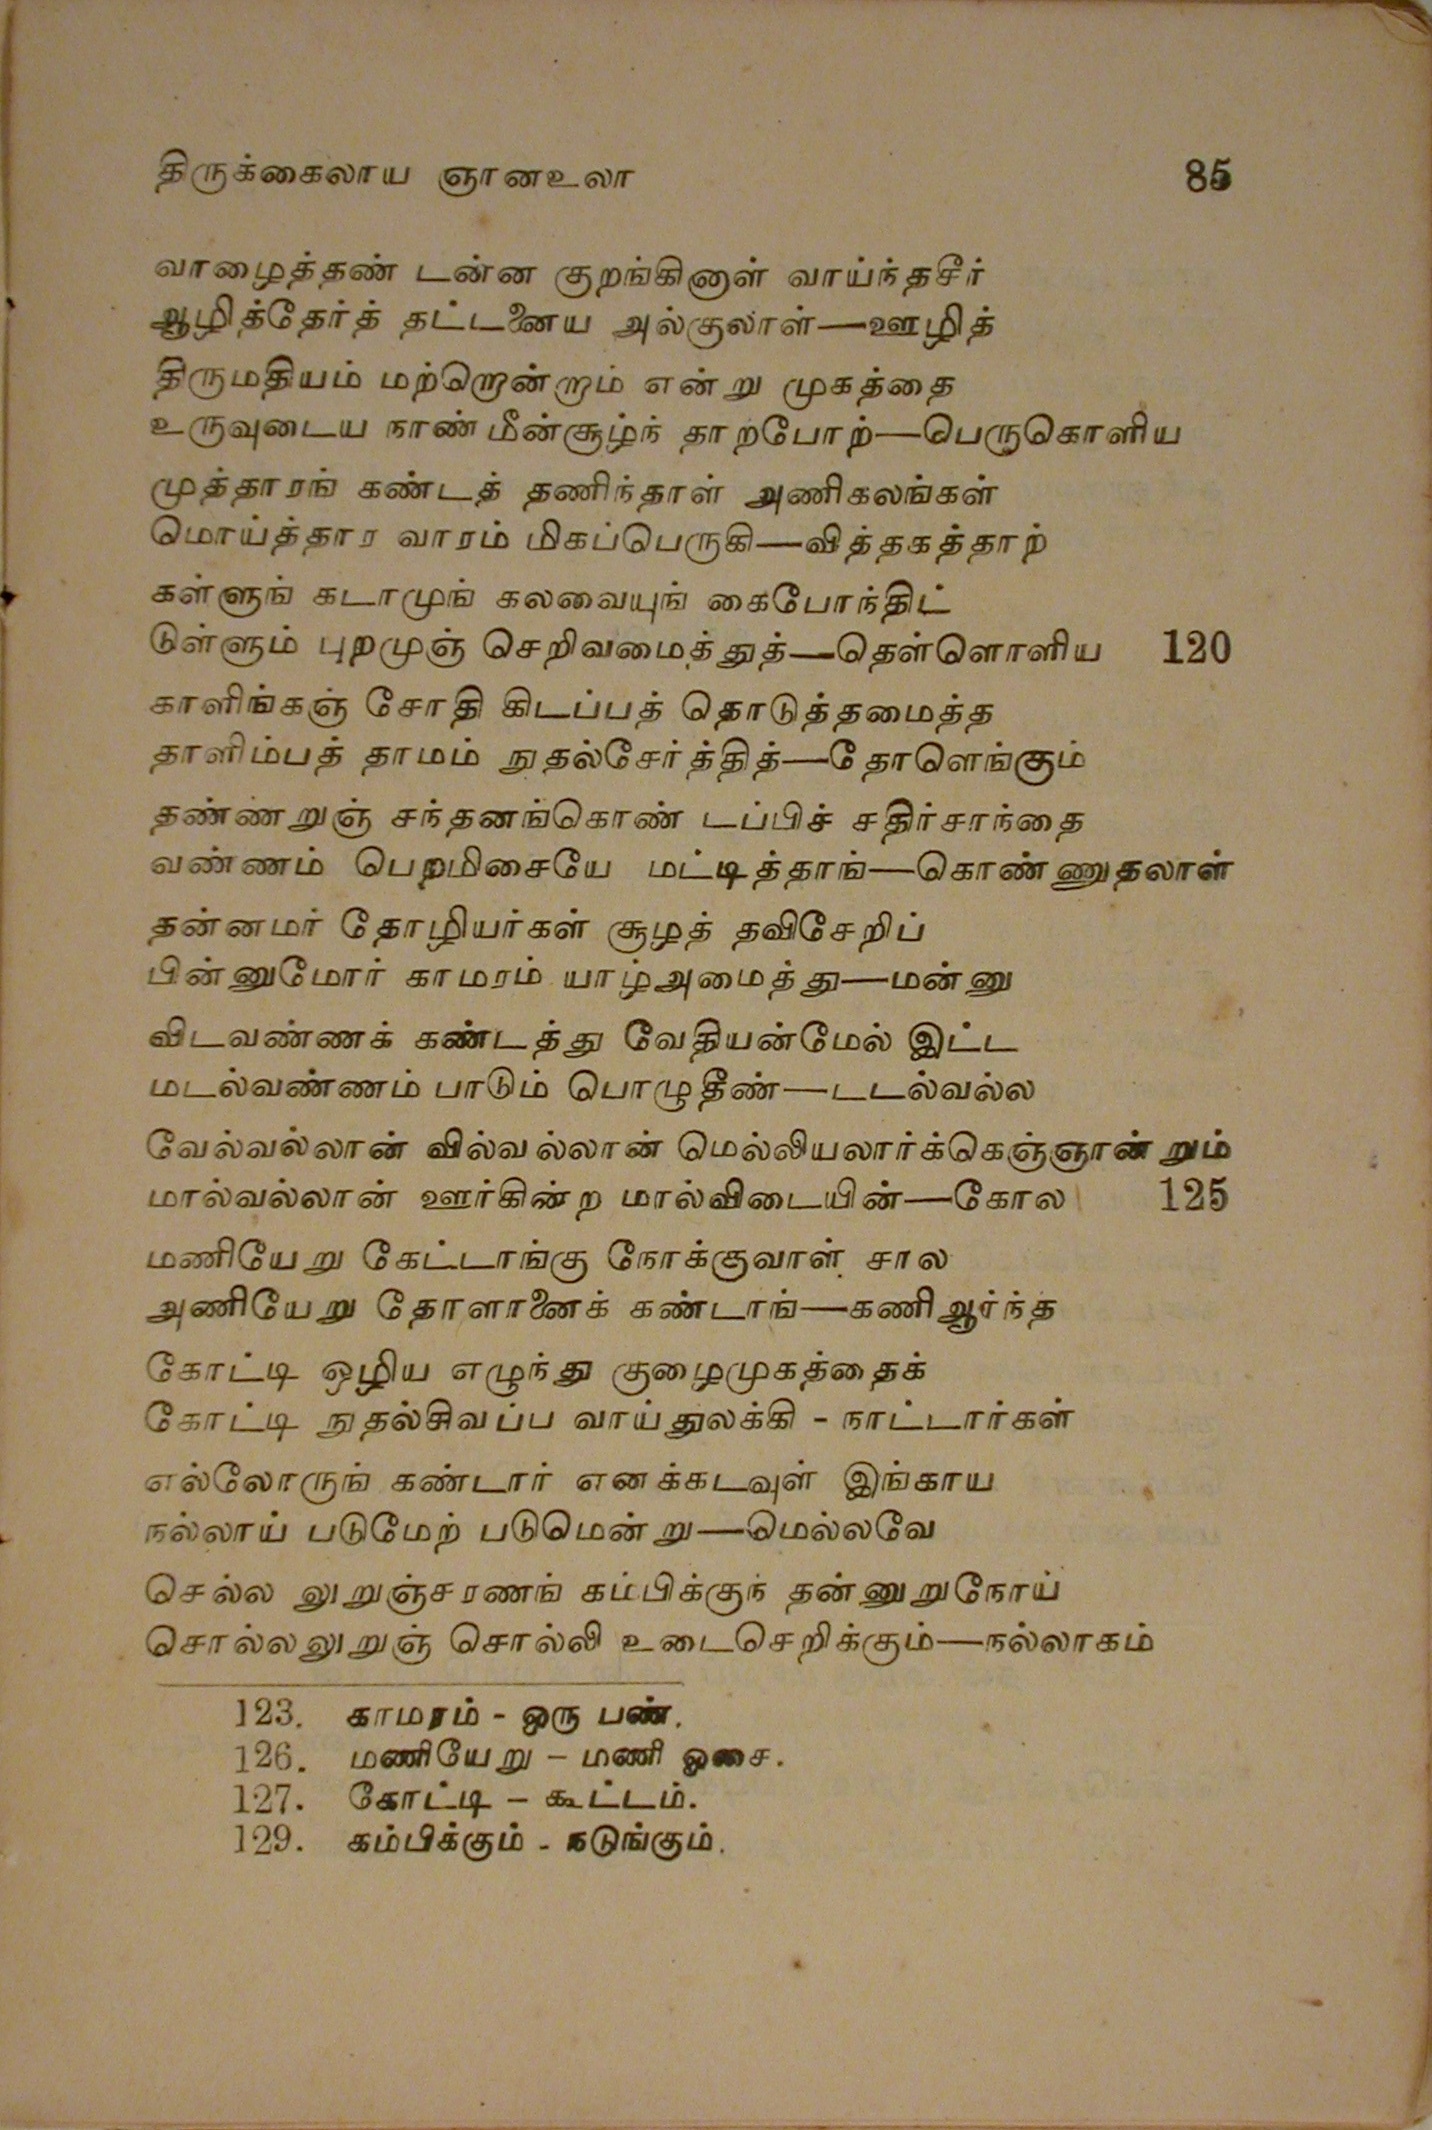 திருக்கைலாய ஞானஉலா 85
வாழைத்தண் டன்ன குறங்கினாள் வாய்ந்தசீர்
ஆழித்தேர்த் தட்டனைய அல்குலாள்—ஊழித்
திருமதியம் மற்றொன்றாம் என்று முகத்தை
உருவுடைய நாண்மீன்சூழ்ந் தாற்போற்—பெருகொளிய
முத்தாரங் கண்டத் தணிந்தாள் அணிகலங்கள்
மொய்த்தார வாரம் மிகப்பெருகி—வித்தகத்தாற்
கள்ளுங் கடாமுங் கலவையுங் கைபோந்திட்
டுள்ளும் புறமுஞ் செறிவமைத்துத்—தெள்ளொளிய 120
காளிங்கஞ் சோதி கிடப்பத் தொடுத்தமைத்த
தாளிம்பத் தாமம் நுதல்சேர்த்தித்—தோளெங்கும்
தண்ணறுஞ் சந்தனங்கொண் டப்பிச் சதிர்சாந்தை
வண்ணம் பெறமிசையே மட்டித்தாங்—கொண்ணுதலாள்
தன்னமர் தோழியர்கள் சூழத் தவிசேறிப்
பின்னுமோர் காமரம் யாழ்அமைத்து—மன்னு
விடவண்ணக் கண்டத்து வேதியன்மேல் இட்ட
மடல்வண்ணம் பாடும் பொழுதீண்—டடல்வல்ல
வேல்வல்லான் வில்வல்லான் மெல்லியலார்க்கெஞ்ஞான்றும்
மால்வல்லான் ஊர்கின்ற மால்விடையின்—கோல 125
மணியேறு கேட்டாங்கு நோக்குவாள் சால
அணியேறு தோளானைக் கண்டாங்—கணிஆர்ந்த
கோட்டி ஒழிய எழுந்து குழைமுகத்தைக்
கோட்டி நுதல்சிவப்ப வாய்துலக்கி - நாட்டார்கள்
எல்லோருங் கண்டார் எனக்கடவுள் இங்காய
நல்லாய் படுமேற் படுமென்று—மெல்லவே
செல்ல லுறுஞ்சரணங் கம்பிக்குந் தன்னுறுநோய்
சொல்லலுறுஞ் சொல்லி உடைசெறிக்கும்—நல்லாகம்
123. காமரம் - ஒரு பண்.
126. மணியேறு – மணி ஓசை.
127. கோட்டி – கூட்டம்.
129. கம்பிக்கும் - நடுங்கும்.